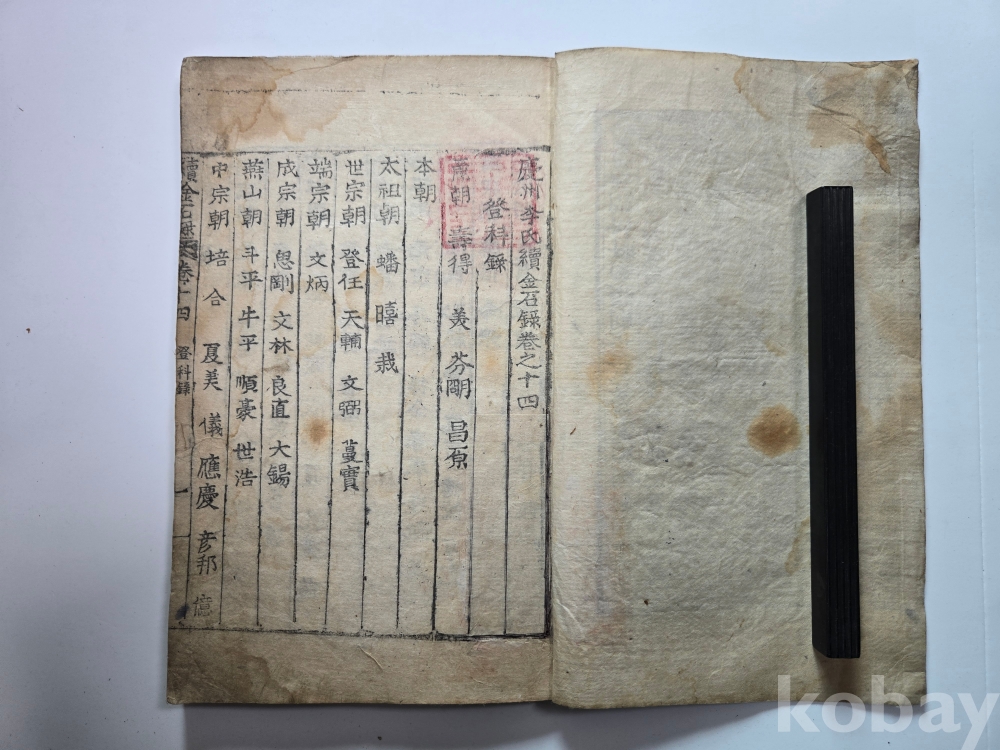 慶州李氏續金石錄卷之十四
登科錄
朝 壽得 美 芬 昌原
本朝
太祖朝 蟠 暿 栽
世宗朝 登任 天輔 文弼 蔓實
端宗朝 文炳
成宗朝 思剛 文林 良直 大錫
燕山朝 斗平 牛平 順豪 世浩
中宗朝 培 合 夏美 儀 應慶 彦邦 億
續金石錄 卷十四 登科錄 一
kobay